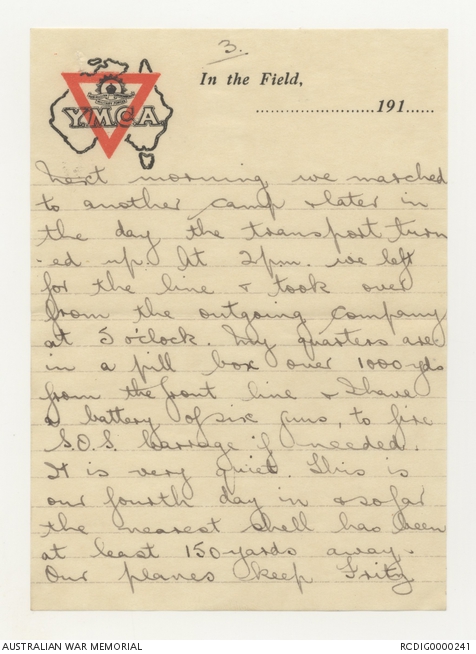 3.
Y.M.C.A
In the Field,
........................191......
Next morning we marched
to another camp & later in
the day the transport turn
-ed up. At 2pm. we left
for the line & took over
from the outgoing company
at 5 o'clock. My quarters are
in a pill box over 1000 yds
from the front line & I have
a battery of six guns, to fire
S.O.S. barrage if needed.
It is very quiet. This is
our fourth day in & so far
the nearest shell has been
at least 150 yards away.
Our planes keep Fritz
AUSTRALIAN WAR MEMORIAL
RCDIG0000241